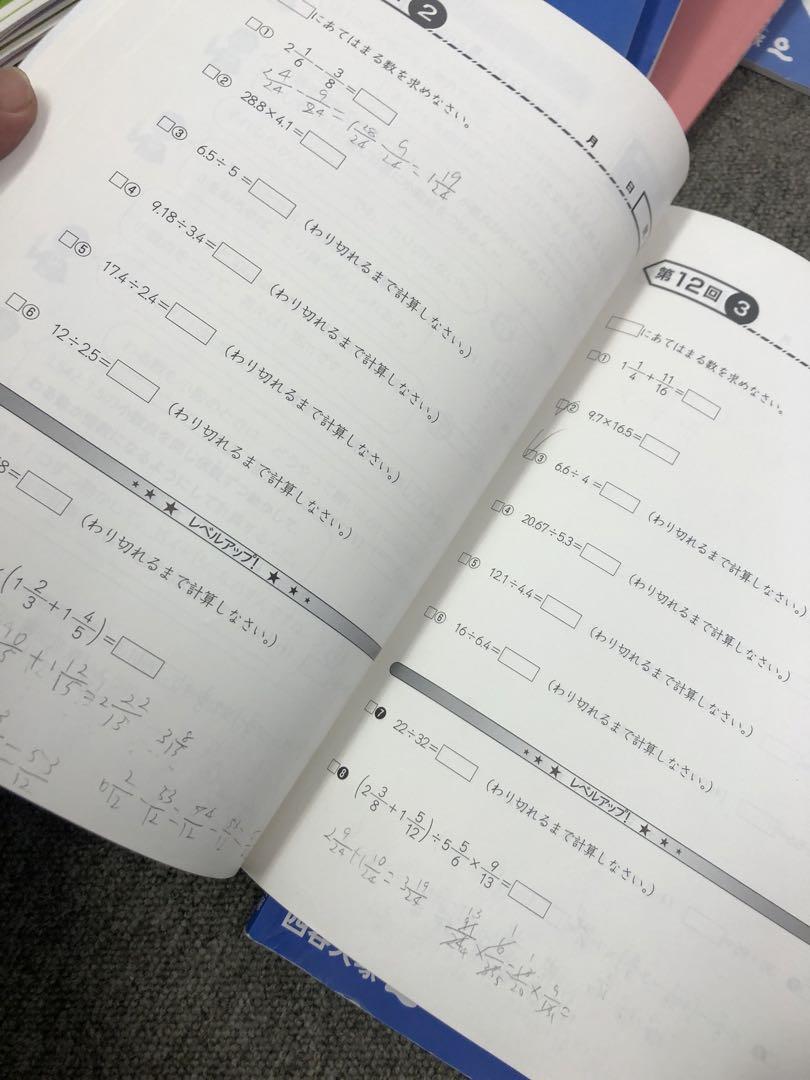 2
にあてはまる数を求めなさい。
□① 2 1/6 - 3/8 =
2 4/24 - 9/24 = 1 28/24 - 9/24 = 1 19/24
□② 28.8×4.1=
□③ 6.5÷5= (わり切れるまで計算しなさい。)
□④ 9.18÷3.4= (わり切れるまで計算しなさい。)
□⑤ 17.4÷2.4= (わり切れるまで計算しなさい。)
□⑥ 12÷2.5= (わり切れるまで計算しなさい。)
月 日
★★★ レベルアップ! ★★★
8= (わり切れるまで計算しなさい。)
(1 2/3 + 1 4/5) =
+ 1 12/15 = 2 22/15 3 8/15
第12回 3
にあてはまる数を求めなさい。
□① 1 1/4 + 11/16 =
□② 9.7×16.5=
□③ 6.6÷4= (わり切れるまで計算しなさい。)
□④ 20.67÷5.3= (わり切れるまで計算しなさい。)
□⑤ 12.1÷4.4= (わり切れるまで計算しなさい。)
□⑥ 16÷6.4= (わり切れるまで計算しなさい。)
★★★ レベルアップ! ★★★
□❼ 22÷32= (わり切れるまで計算しなさい。)
□❽ (2 3/8 + 1 5/12) ÷ 5 5/6 × 9/13 =
2 9/24 + 1 10/24 = 3 19/24
四谷大塚